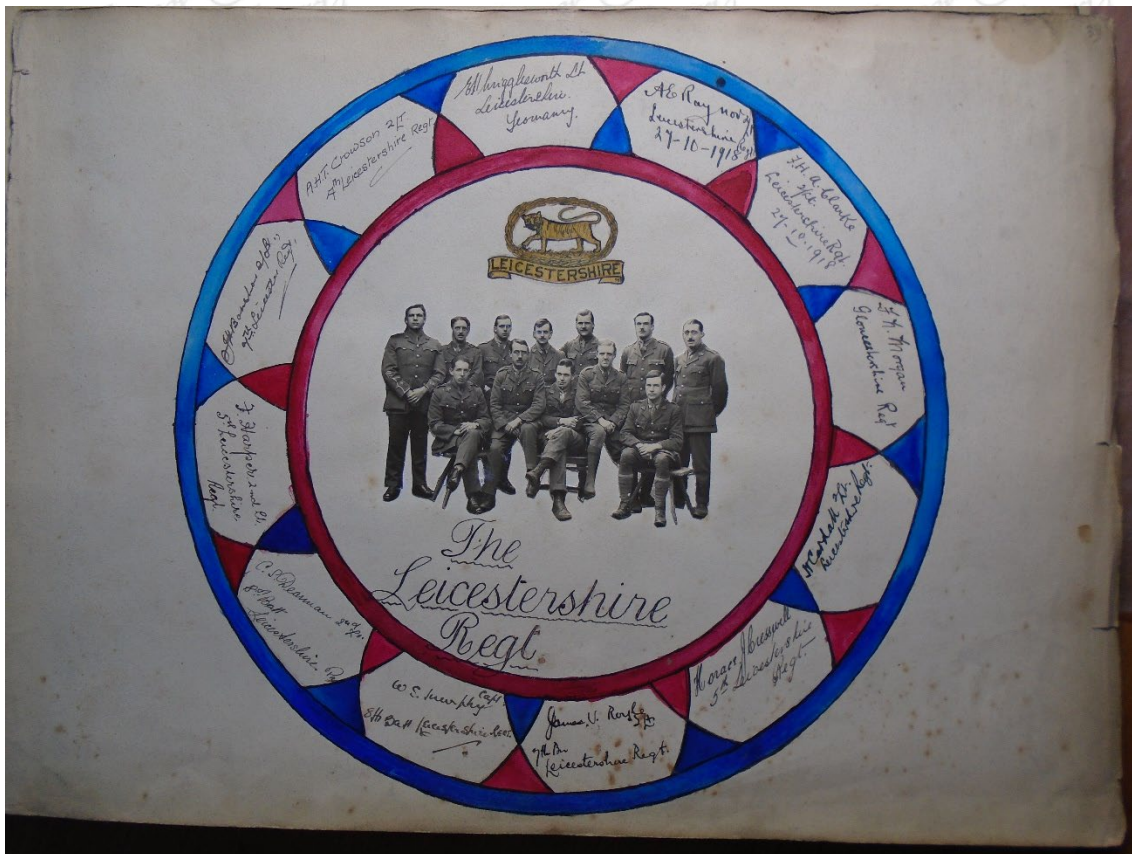 LEICESTERSHIRE
The
Leicestershire
Regt
Wrigglesworth Lt
Leicestershire
Yeomanry.
A E Ray
Leicestershire Regt
27-10-1918
F. H. A. Clarke
2/Lt.
Leicestershire Regt.
27.10.1918
Morgan
Gloucestershire Regt
2/Lt.
Leicestershire Regt.
Horace Cresswell
5th Leicestershire
Regt.
James. V.
7th Bn
Leicestershire Regt.
W. E. Murphy Capt
Batt Leicestershire Regt.
C. Dearman 2nd Lt.
Batt
Leicestershire
F Harper 2nd Lt.
Leicestershire.
Regt
2/Lt
7th Leicester Regt.
A.H.T. Crowson 2/Lt
7th Leicestershire Regt